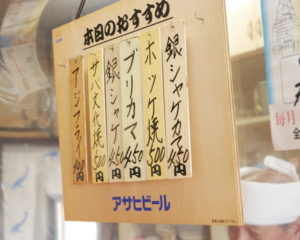 本日のおすすめ
銀シャケカマ450円
ホッケ焼500円
ブリカマ450円
銀シャケ450円
サバ文化焼500円
アジフライ
アサヒビール
毎月